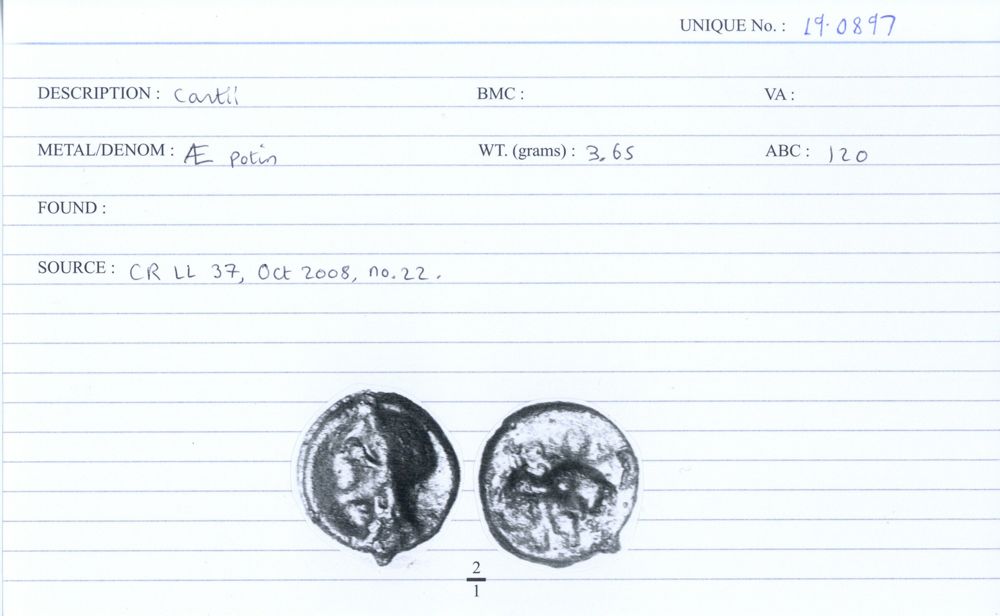 UNIQUE No. : 19.0897
DESCRIPTION : Cantii BMC : VA :
METAL/DENOM : Æ potin WT. (grams) : 3.65 ABC : 120
FOUND :
SOURCE : CR LL 37, Oct 2008, no.22.
2
1